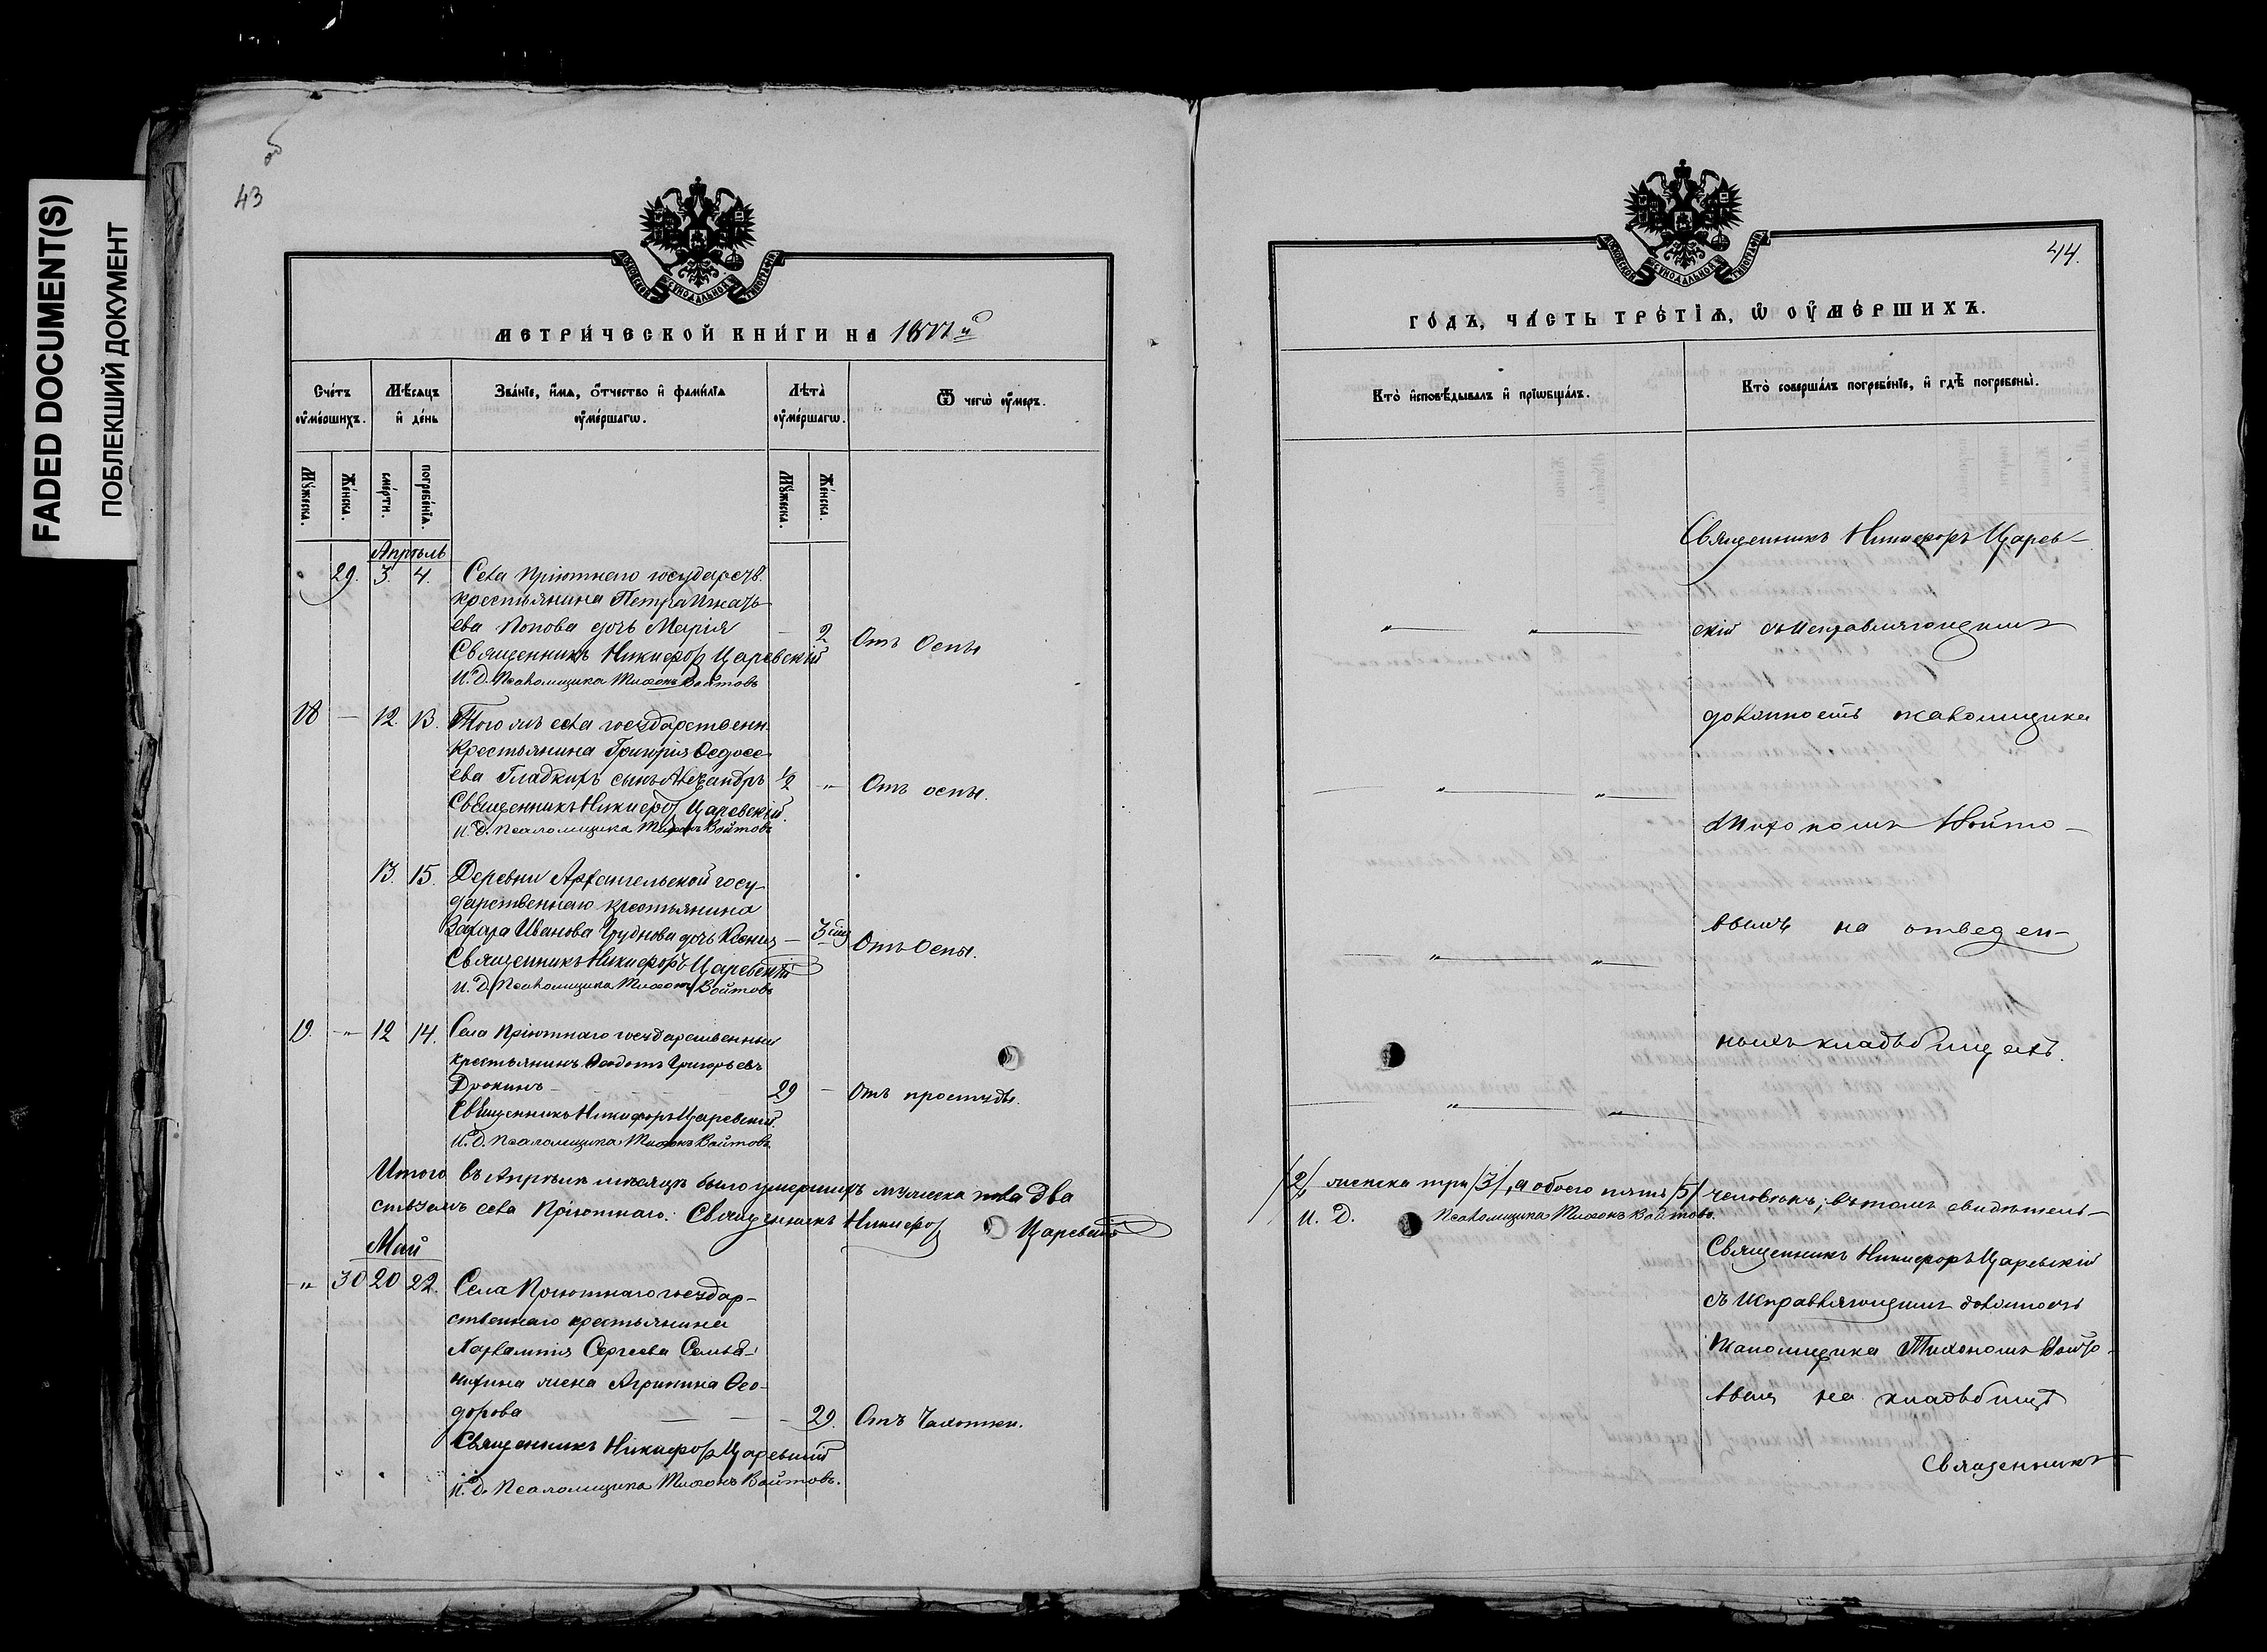 FADED DOCUMENT(S)
ПОБЛЕКШИЙ ДОКУМЕНТ
об
43
МОСКОВСКОЙ СУНОДАЛЬНОЙ ТИПОГРАФІИ
МЕТРИ́ЧЕСКОЙ КНИ́ГИ НА 1877й
Сче́тъ ᲂу҆ме́ршихъ.
Мѣ́сѧцъ и҆ де́нь
Зва́нїе, и҆́мѧ, ѻ҆́тчество и҆ фами́лїѧ ᲂу҆ме́ршагѡ.
Лѣ́та ᲂу҆ме́ршагѡ.
Ѿ чегѡ̀ ᲂу҆́меръ.
Мꙋ́жеска.
Же́нска.
сме́рти.
погребе́нїѧ.
Мꙋ́жеска.
Же́нска.
Апрѣль
29. 3. 4. Села Пріютнаго государств.
крестьянина Петра Игнать-
ева Попова дочь Марія — 2 Отъ Оспы
Священникъ Никифоръ Царевскій
И. Д. Псаломщика Тихонъ Войтовъ
18 — 12. 13. Того жъ села государственн.
крестьянина Григорія Ѳедосе-
ева Гладкихъ сынъ Александръ 1/2 „ Отъ оспы.
Священникъ Никифоръ Царевскій.
И. Д. Псаломщика Тихонъ Войтовъ
13. 15. Деревни Архангельской госу-
дарственнаго крестьянина
Захара Иванова Груднова дочь Ксенія — 3 Отъ Оспы.
Священникъ Никифоръ Царевскій
И. Д. Псаломщика Тихонъ Войтовъ
19. „ 12 14. Села Пріютнаго государственный
крестьянинъ Ѳеодотъ Григорьевъ
Дрокинъ — 29 — Отъ простуды.
Священникъ Никифоръ Царевскій.
И. Д. Псаломщика Тихонъ Войтовъ
Итого въ Апрѣлѣ мѣсяцѣ было умершихъ мужеска пола два
ствуемъ села Пріютнаго: Священникъ Никифоръ Царевскій
Май
„ 30 20 22. Села Пріютнаго государ-
ственнаго крестьянина
Харлампія Сергеева
жена Агрипина Ѳео-
дорова — — — 29. Отъ Чахотки.
Священникъ Никифоръ Царевскій
И. Д. Псаломщика Тихонъ Войтовъ.
44.
МОСКОВСКОЙ СУНОДАЛЬНОЙ ТИПОГРАФІИ
ГО́ДЪ, ЧА́СТЬ ТРЕ́ТІѦ, Ѡ҆ ОУ҆МЕ́РШИХЪ.
Кто̀ и҆сповѣ́дывалъ и҆ прїѡбща́лъ.
Кто̀ соверша́лъ погребе́нїе, и҆ гдѣ̀ погребены̀.
Священникъ Никифоръ Царев-
„ „ скій съ исправляющимъ
должность псаломщика
„ „
Тихономъ Войто-
вымъ на отведен-
„ „
ныхъ кладбищахъ.
„ „
/2/ женска три /3/, а обоего пять /5/ человѣкъ; въ томъ свидѣтель-
И. Д. Псаломщика Тихонъ Войтовъ.
Священникъ Никифоръ Царевскій
съ исправляющимъ должность
псаломщика Тихономъ Войто-
вымъ на кладбищѣ
Священникъ